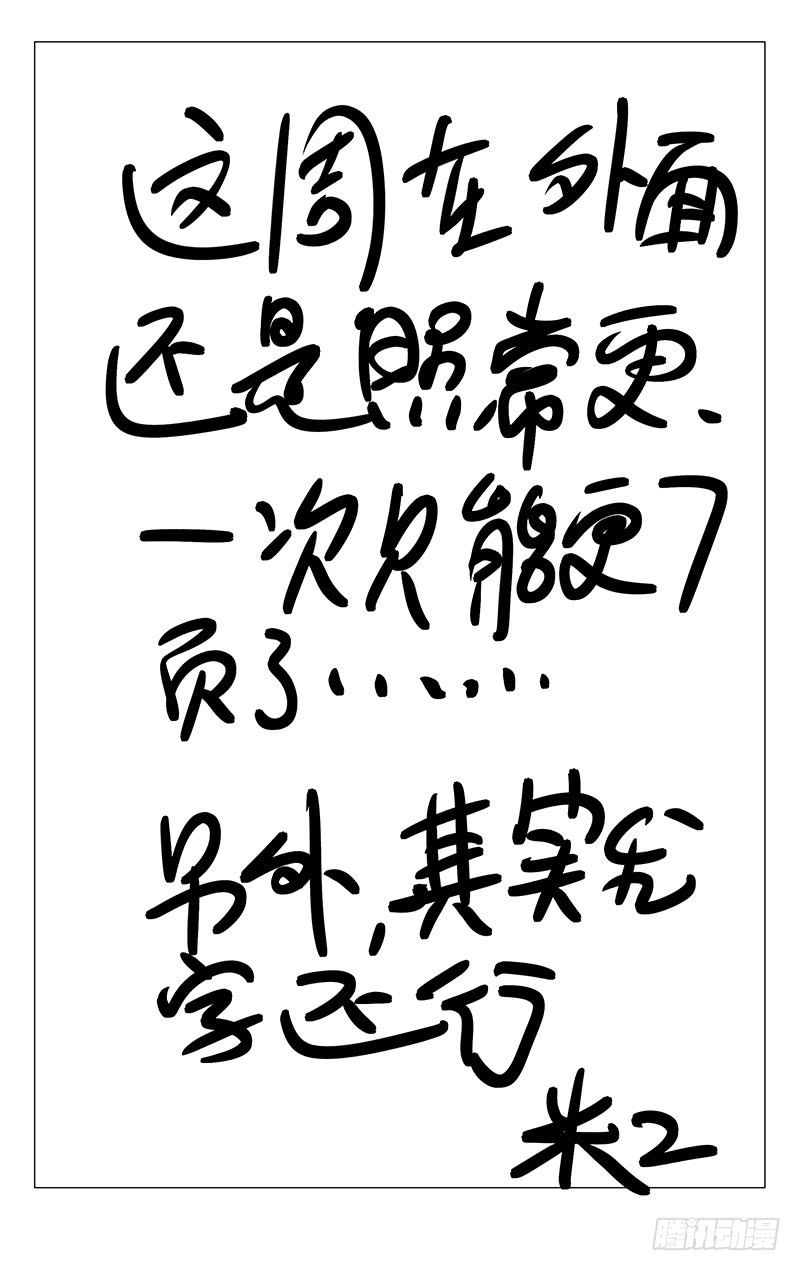 这周在外面
还是照常更、
一次只能更7
页了……
另外,其实我
字还行
米2
腾讯动漫